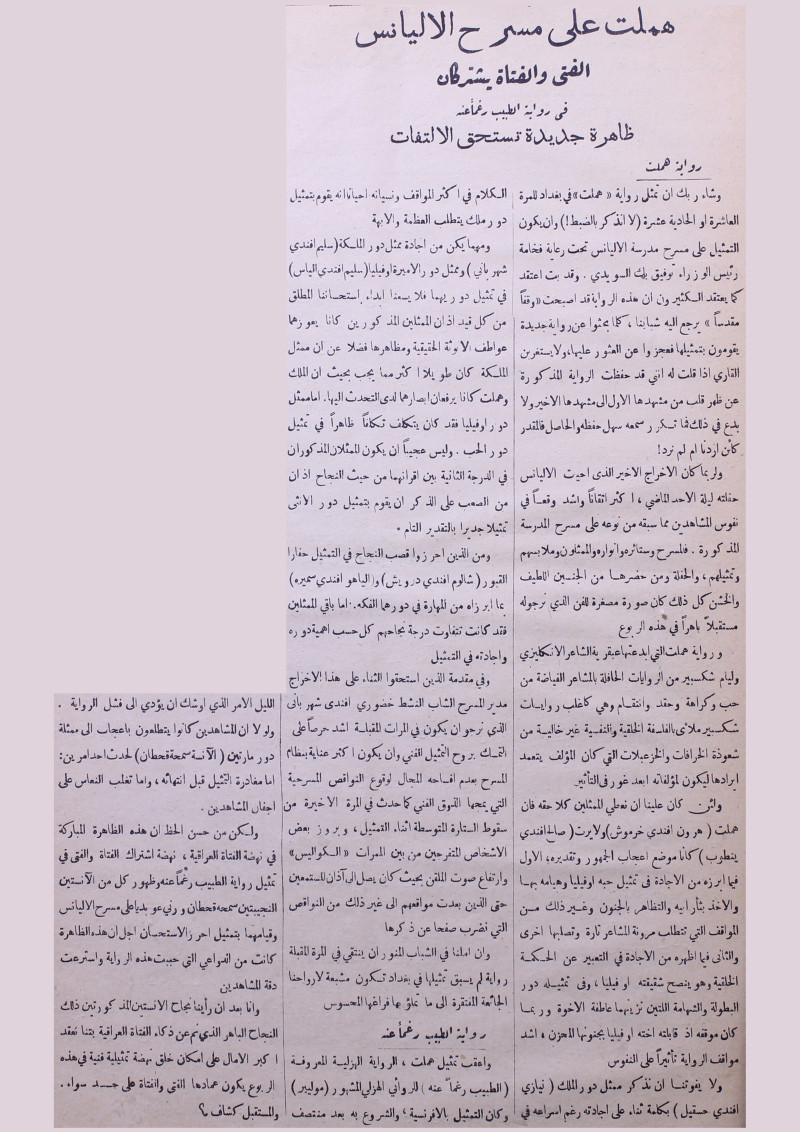 هملت على مسرح الاليانس
الفتى والفتاة يشتركان
في رواية الطبيب رغماً عنه
ظاهرة جديدة تستحق الالتفات
رواية هملت
وشاء ربك ان تمثل رواية « هملت » في بغداد للمرة
العاشرة او الحادية عشرة (لا اتذكر بالضبط!) وان يكون
التمثيل على مسرح مدرسة الاليانس تحت رعاية فخامة
رئيس الوزراء توفيق بك السويدي . وقد بت اعتقد
كما يعتقد الكثيرون ان هذه الرواية قد اصبحت « وقفاً
مقدساً » يرجع اليه شبابنا ، كلما بحثوا عن رواية جديدة
يقومون بتمثيلها فعجزوا عن العثور عليها، ولا يستغربن
القاري اذا قلت له انني قد حفظت الرواية المذكورة
عن ظهر قلب من مشهدها الاول الى مشهدها الاخير ولا
بدع في ذلك فما تكرر سمعه سهل حفظه والحاصل فالمقدر
كائن اردنا ام لم نرد!
ولربما كان الاخراج الاخير الذى احيت الاليانس
حفلته ليلة الاحد الماضي ، اكثر اتقاناً واشد وقعاً في
نفوس المشاهدين مما سبقه من نوعه على مسرح المدرسة
المذكورة . فالمسرح وستائره وانواره والممثلون وملابسهم
وتمثيلهم ، والحفلة ومن حضرها من الجنسين اللطيف
والخشن كل ذلك كان صورة مصغرة للفن الذي نرجو له
مستقبلاً باهراً في هذه الربوع
ورواية هملت التي ابدعتها عبقرية الشاعر الانكليزي
وليام شكسبير من الروايات الحافلة بالمشاعر الفياضة من
حب وكراهة وحقد وانتقام وهي كاغلب روايات
شكسبير ملآى بالفلسفة الخلقية والنفسية غير خالية من
شعوذة الخرافات والخزعبلات التي كان المؤلف يتعمد
ايرادها ليكون لمؤلفاته ابعد غور في التأثير
ولئن كان علينا ان نعطي الممثلين كلا حقه فان
هملت ( هرون افندي خرموش ) ولايرت ( صالح افندي
ينطوب ) كانا موضع اعجاب الجمهور وتقديره، الاول
فيما ابرزه من الاجادة فى تمثيل حبه اوفيليا وهيامه بها
والاخذ بثأر ابيه والتظاهر بالجنون وغير ذلك من
المواقف التي تتطلب مرونة المشاعر تارة وتصلبها اخرى
والثاني فيما اظهره من الاجادة في التعبير عن الحكمة
الخلقية وهو ينصح شقيقته اوفيليا ، وفى تمثيله دور
البطولة والشهامة اللتين تزينهما عاطفة الاخوة وربما
كان موقفه اذ قابلته اخته اوفيليا بجنونها المحزن ، اشد
مواقف الرواية تأثيراً على النفوس
ولا يفوتنا ان نذكر ممثل دور الملك ( نيازي
افندي حسقيل ) بكلمة ثناء على اجادته رغم اسراعه في
الكلام في اكثر المواقف ونسيانه احيانا انه يقوم بتمثيل
دور ملك يتطلب العظمة والابهة
ومهما يكن من اجادة ممثل دور الملكة (سليم افندي
شهرباني ) وممثل دور الاميرة اوفيليا (سليم افندي الياس)
في تمثيل دوريهما فلا يسعنا ابداء إستحساننا المطلق
من كل قيد اذ ان الممثلين المذكورين كانا يعوزهما
عواطف الانوثة الحقيقية ومظاهرها فضلا عن ان ممثل
الملكة كان طويلا اكثر مما يجب بحيث ان الملك
وهملت كانا يرفعان ابصارهما لدى التحدث اليها. اما ممثل
دور اوفيليا فقد كان يتكلف تكلفاً ظاهراً في تمثيل
دور الحب . وليس عجيباً ان يكون الممثلان المذكوران
في الدرجة الثانية بين اقرانهما من حيث النجاح اذ ان
من الصعب على الذكر ان يقوم بتمثيل دور الانثى
تمثيلا جديرا بالتقدير التام .
ومن الذين احرزوا قصب النجاح في التمثيل حفارا
القبور ( شالوم افندي درويش ) و( الياهو افندي سميره )
بما ابرزاه من المهارة في دورهما الفكه. اما باقي الممثلين
فقد كانت تتفاوت درجة نجاحهم كل حسب اهمية دوره
واجادته في التمثيل
وفي مقدمة الذين استحقوا الثناء على هذا الاخراج
مدير المسرح الشاب النشط خضوري افندي شهرباني
الذي نرجو ان يكون في المرات المقبلة اشد حرصاً على
التمسك بروح التمثيل الفني وان يكون اكثر عناية بنظام
المسرح بعدم افساحه المجال لوقوع النواقص المسرحية
التي يمجها الذوق الفني كما حدث في المرة الاخيرة من
سقوط الستارة المتوسطة اثناء التمثيل ، وبروز بعض
الاشخاص المتفرجين من بين الممرات «الكواليس»
وارتفاع صوت الملقن بحيث كان يصل الى آذان المستمعين
حتى الذين بعدت مواقعهم الى غير ذلك من النواقص
التي نضرب صفحا عن ذكرها
وان املنا في الشباب المنور ان ينتقي في المرة المقبلة
رواية لم يسبق تمثيلها في بغداد تكون مشبعة لارواحنا
الجائعة المفتقرة الى ما تملؤ بها فراغها المحسوس
رواية الطبيب رغماً عنه
واعقب تمثيل هملت ، الرواية الهزلية المعروفة
( الطبيب رغماً عنه ) للروائي الهزلي المشهور ( موليير )
وكان التمثيل بالافرنسية ، والشروع به بعد منتصف
الليل الامر الذي اوشك ان يؤدي الى فشل الرواية .
ولولا ان المشاهدين كانوا يتطلعون باعجاب الى ممثلة
دور مارتين ( الآنسة سمحة قحطان ) لحدث احد امرين:
اما مغادرة التمثيل قبل انتهائه ، واما تغلب النعاس على
اجفان المشاهدين .
ولكن من حسن الحظ ان هذه الظاهرة المباركة
في نهضة الفتاة العراقية ، نهضة اشتراك الفتاة والفتى في
تمثيل رواية الطبيب رغماً عنه وظهور كل من الآنستين
النجيبتين سمحه قحطان ورني عوبديا على مسرح الاليانس
وقيامهما بتمثيل احرز الاستحسان اجل ان هذه الظاهرة
كانت من الدواعي التي حببت هذه الرواية واسترعت
دقة المشاهدين
وانا بعد ان رأينا نجاح الانستين المذكورتين ذلك
النجاح الباهر الذي نم عن ذكاء الفتاة العراقية بتنا نعقد
اكبر الامال على امكان خلق نهضة تمثيلية فنية في هذه
الربوع يكون عمادها الفتى والفتاة على حد سواء .
والمستقبل كشاف م؟